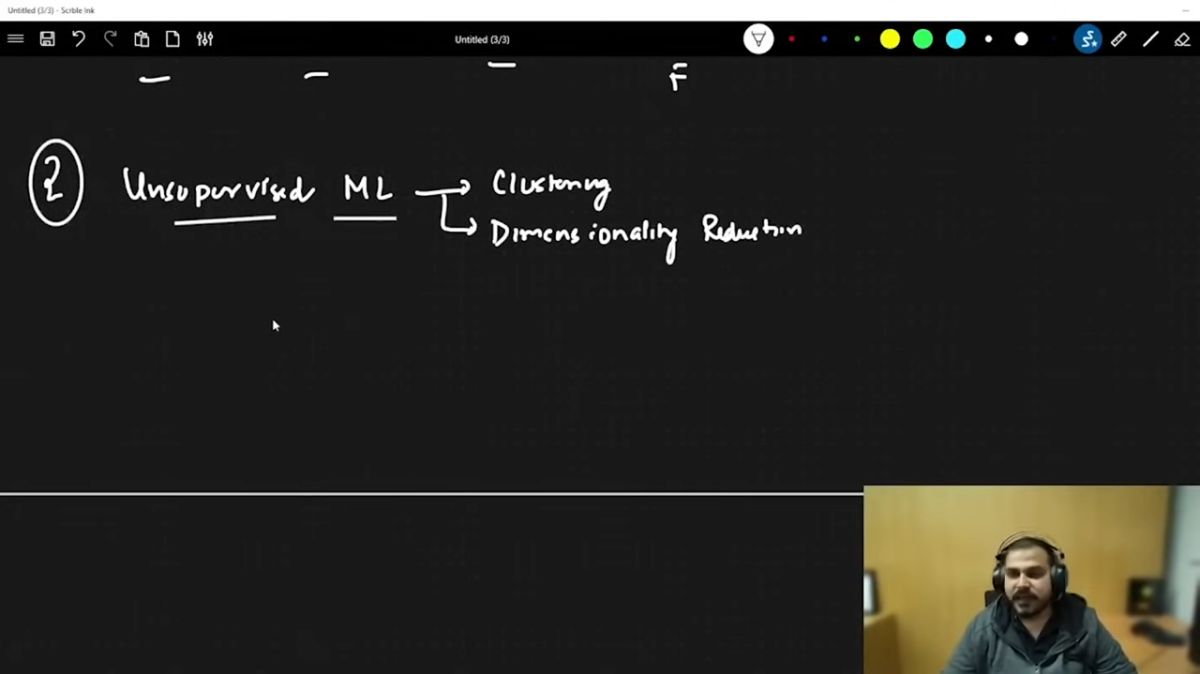 Untitled (3/3) - Scrble Ink
Untitled (3/3)
F
2 Unsupervised ML → Clustering
Dimensionality Reduction